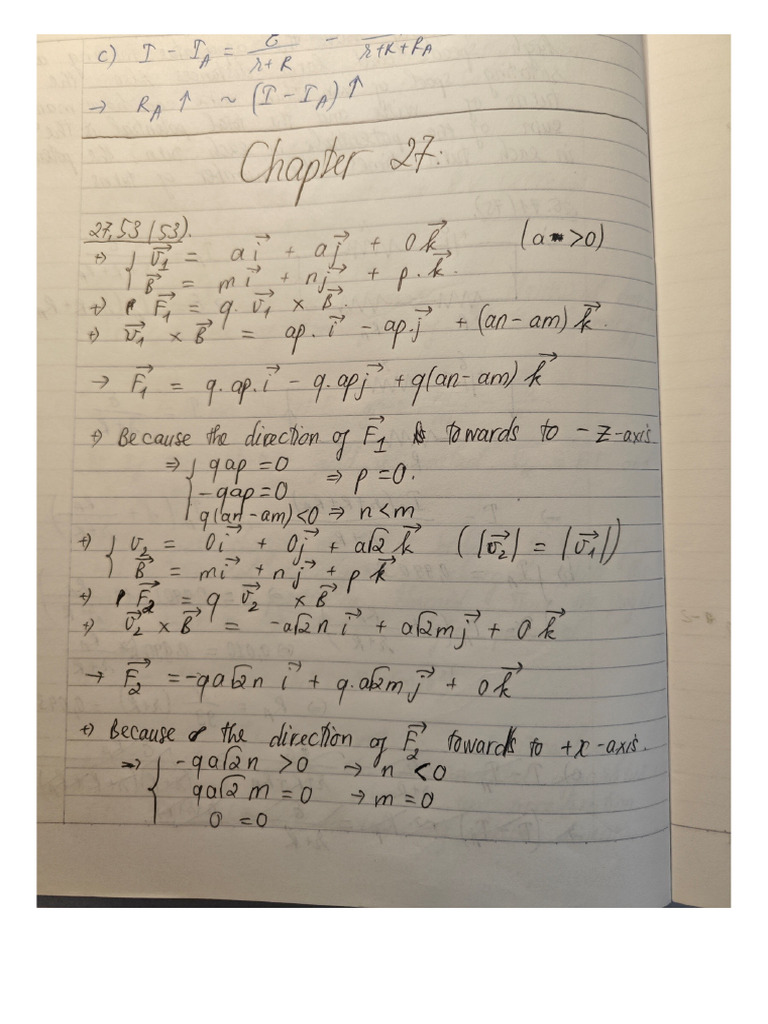 c) I - I_A = ε/(r+R) - /(r+R+R_A)
→ R_A ↑ ~ (I - I_A) ↑
Chapter 27:
27,53 (53).
+) { v₁⃗ = a i⃗ + a j⃗ + 0 k⃗ (a > 0)
{ B⃗ = m i⃗ + n j⃗ + p. k⃗.
+) F₁⃗ = q. v₁⃗ × B⃗.
+) v₁⃗ × B⃗ = ap. i⃗ - ap. j⃗ + (an - am) k⃗.
→ F₁⃗ = q.ap. i⃗ - q.ap j⃗ + q(an - am) k⃗
+) Because the direction of F₁⃗ towards to -z-axis
⇒ { qap = 0 ⇒ p = 0.
{ -qap = 0
{ q(an - am) < 0 ⇒ n < m
+) { v₂ = 0 i⃗ + 0 j⃗ + a√2 k⃗ (|v₂⃗| = |v₁⃗|)
{ B⃗ = m i⃗ + n j⃗ + p k⃗
+) F₂⃗ = q v₂⃗ × B⃗
+) v₂⃗ × B⃗ = -a√2 n i⃗ + a√2 m j⃗ + 0 k⃗
→ F₂⃗ = -qa√2 n i⃗ + q.a√2 m j⃗ + 0 k⃗
+) Because the direction of F₂⃗ towards to +x-axis.
⇒ { -qa√2 n > 0 → n < 0
{ qa√2 m = 0 → m = 0
{ 0 = 0